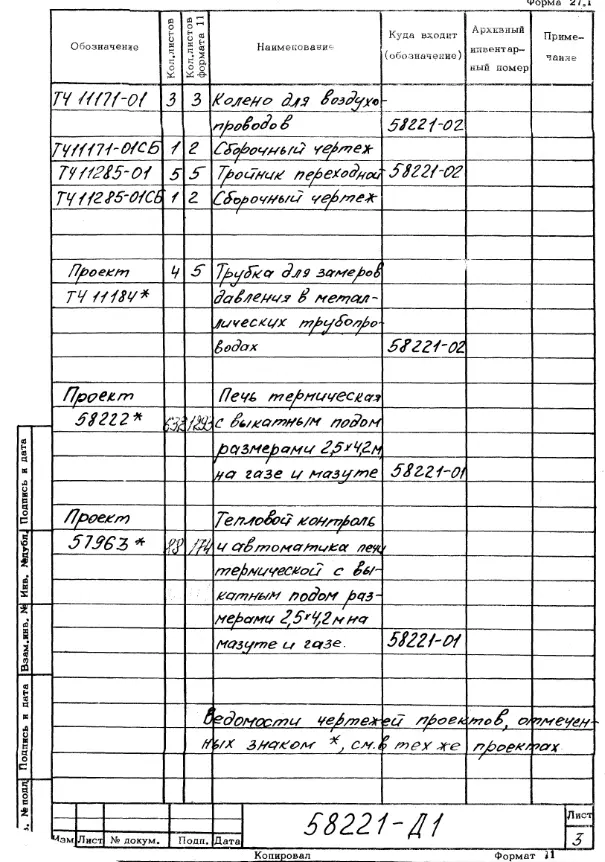 Форма 27.1
Обозначение Кол.листов Кол.листов формата 11 Наименование Куда входит (обозначение) Архивный инвентарный номер Примечание
ТЧ 11171-01 3 3 Колено для воздухо-
проводов 58221-02
ТЧ11171-01СБ 1 2 Сборочный чертеж
ТЧ11285-01 5 5 Тройник переходной 58221-02
ТЧ11285-01СБ 1 2 Сборочный чертеж
Проект 4 5 Трубка для замеров
ТЧ 11184* давления в метал-
лических трубопро-
водах 58221-02
Проект Печь термическая
58222* 632 1293 с выкатным подом
размерами 2,5×4,2м
на газе и мазуте 58221-01
Проект Тепловой контроль
57963* 88 174 и автоматика печи
термической с вы-
катным подом раз-
мерами 2,5×4,2м на
мазуте и газе. 58221-01
Ведомости чертежей проектов, отмечен-
ных знаком *, см. в тех же проектах
Подпись и дата
Инв. №дубл.
Взам.инв. №
Подпись и дата
№ подл
58221-Д1
Лист
3
Изм Лист № докум. Подп. Дата
Копировал Формат 11